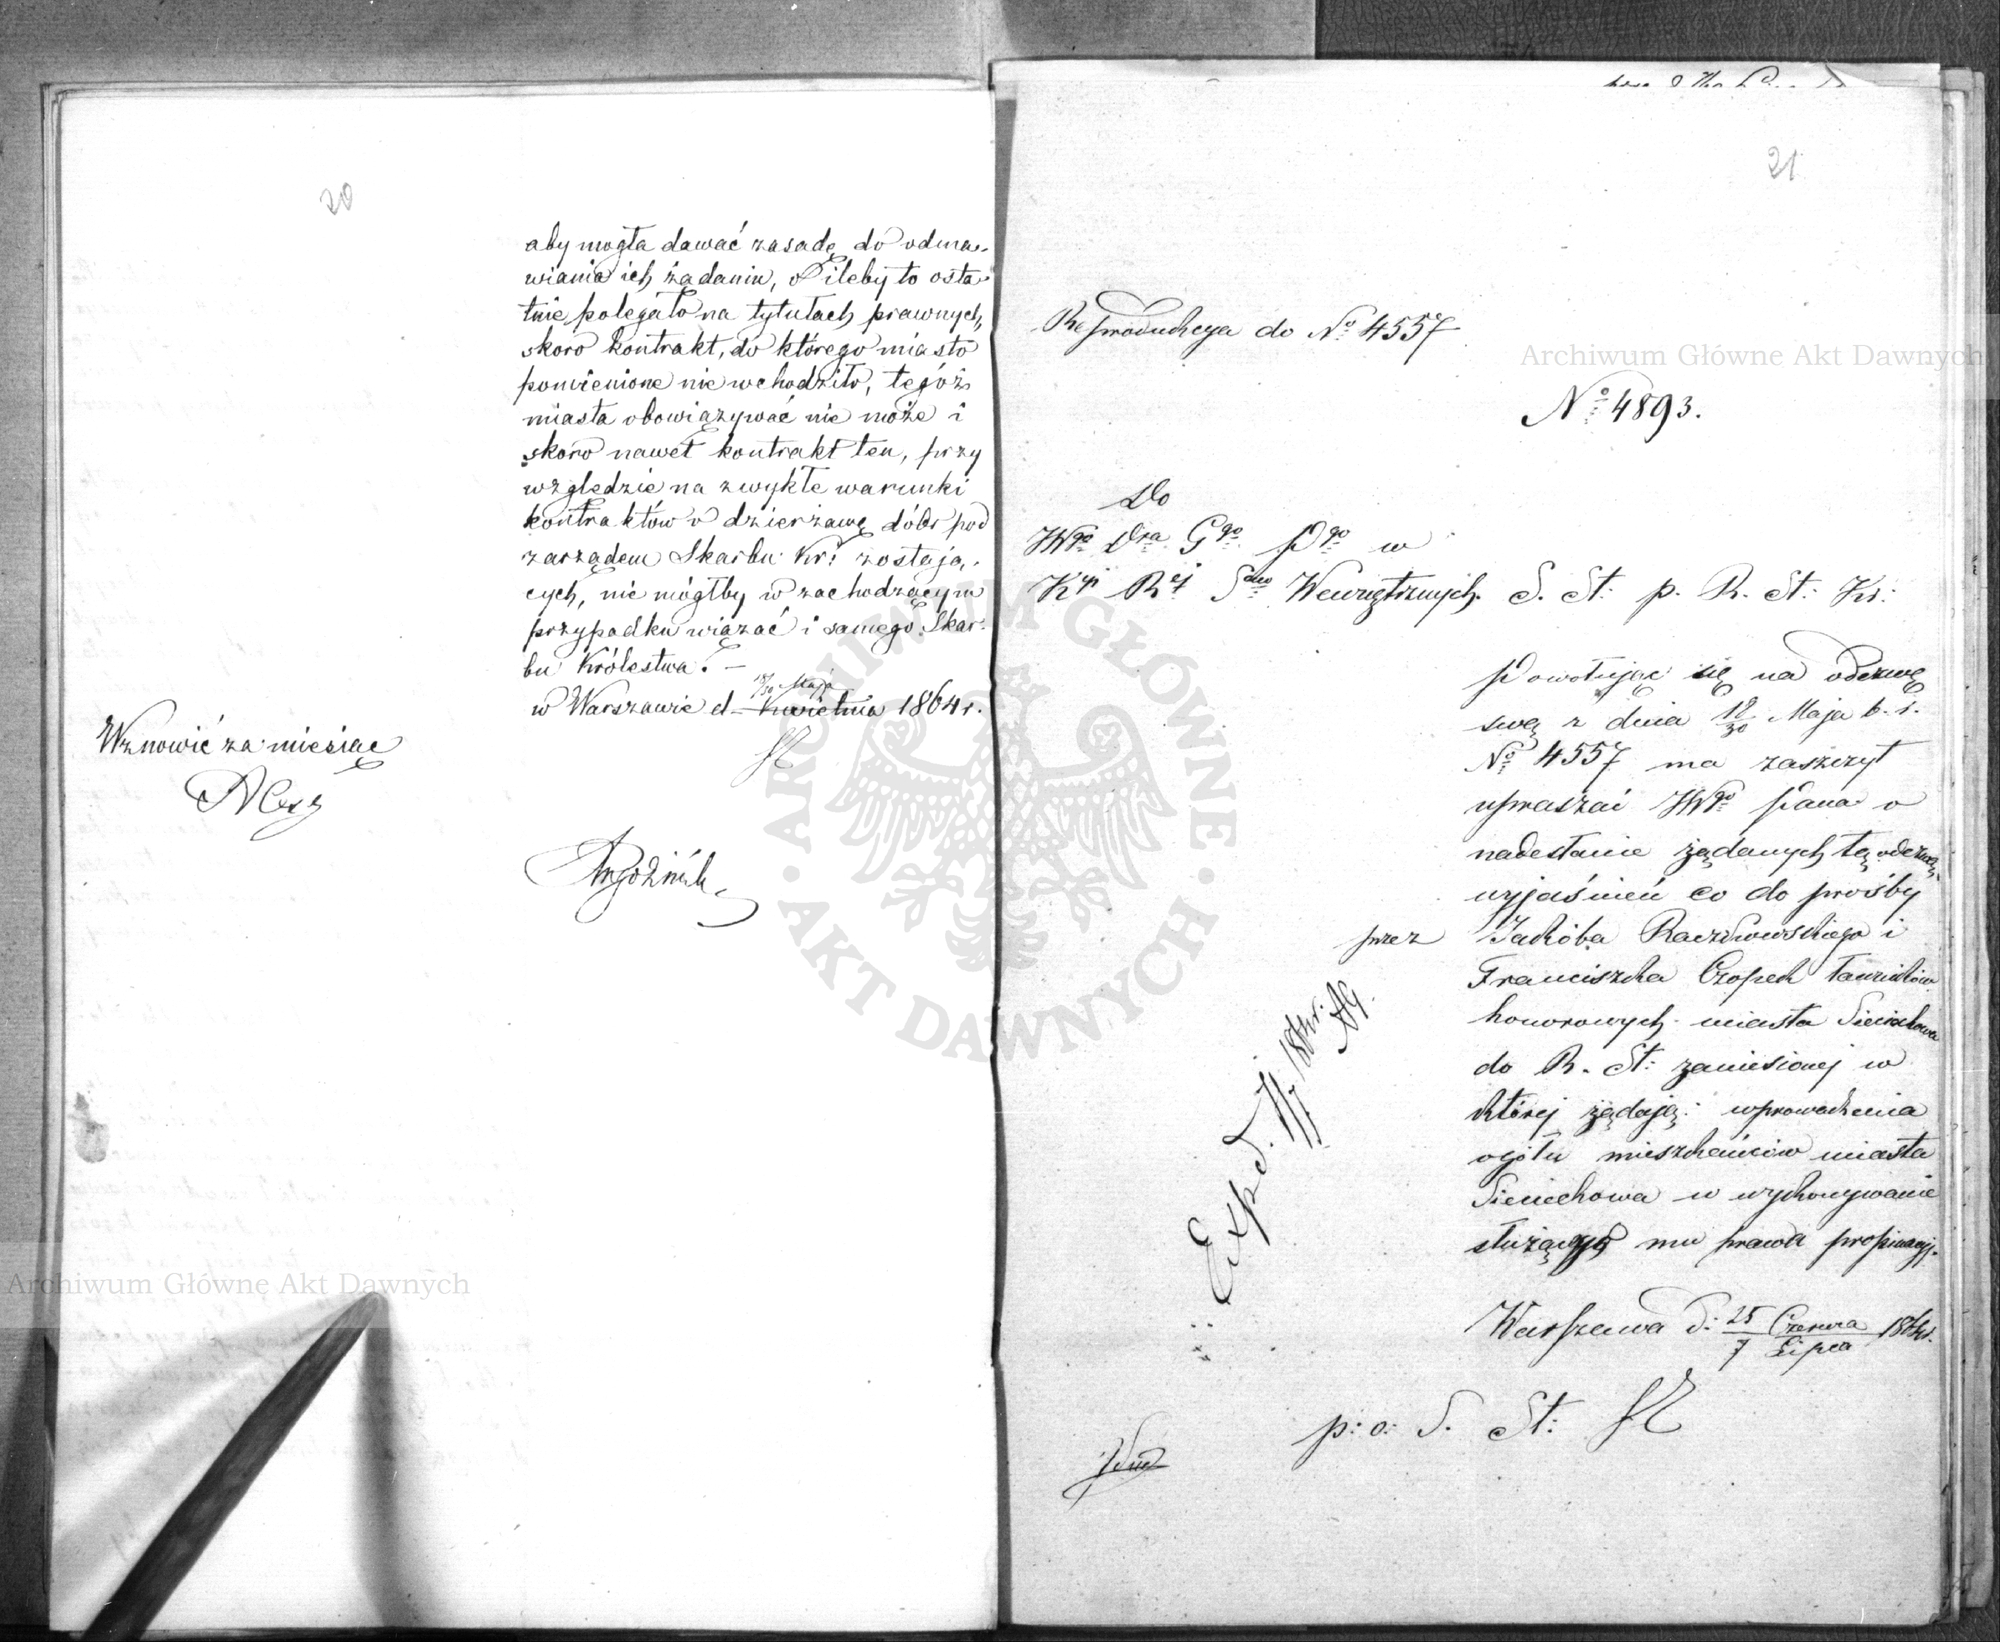 20
aby mogła dawać zasadę do odma-
wiania ich żądaniu, o ileby to osta-
tnie polegało na tytułach prawnych,
skoro kontrakt, do którego miasto
pomienione nie wchodziło, tegóż
miasta obowiązywać nie może i
skoro nawet kontrakt ten, przy
względzie na zwykłe warunki
kontraktów o dzierżawę dóbr pod
zarządem Skarbu Kr: zostają-
cych, nie mógłby w zachodzącym
przypadku wiązać i samego Skar-
bu Królestwa. –
18/30 Maja
w Warszawie d – Kwietnia 1864 r.
Wznowić za miesiąc
21
Reprodukcya do No 4557
No 4893.
Do
JWgo Dra Ggo Pgo w
Kyi Rej Sdw Wewnętrznych. S. St: p. R. St: Kr:
Powołując się na odezwę
swą z dnia 18/30 Maja b. r.
No 4557 ma zaszczyt
upraszać JWgo Pana o
nadesłanie żądanych tą odezwą
wyjaśnień co do prośby
przez Jakóba Raczkowskiego i
Franciszka Czopek Ławników
honorowych miasta Sieciechowa
do R. St: zaniesionej w
której żądają: wprowadzenia
ogółu mieszkańców miasta
Sieciechowa w wykonywanie
służącego mu prawa propinacyj.
Warszawa d: 25 Czerwca / 7 Lipca 1864 r.
p: o: S. St:
Exped.
Archiwum Główne Akt Dawnych
Archiwum Główne Akt Dawnych
ARCHIWUM GŁÓWNE AKT DAWNYCH